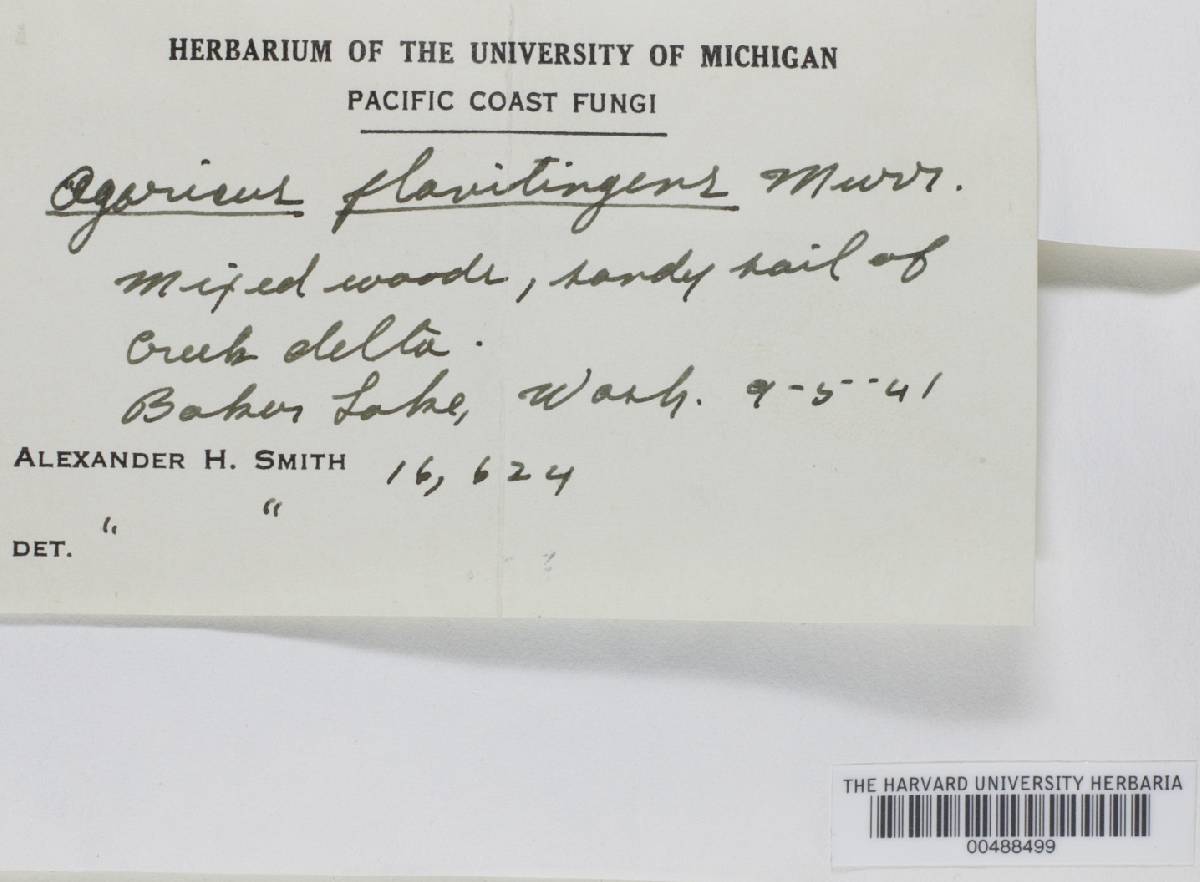 HERBARIUM OF THE UNIVERSITY OF MICHIGAN
PACIFIC COAST FUNGI
Agaricus flavitingens Murr.
Mixed woods, sandy soil of
Creek delta.
Baker Lake, Wash. 9-5-41
ALEXANDER H. SMITH 16,624
" "
DET.
THE HARVARD UNIVERSITY HERBARIA
00488499